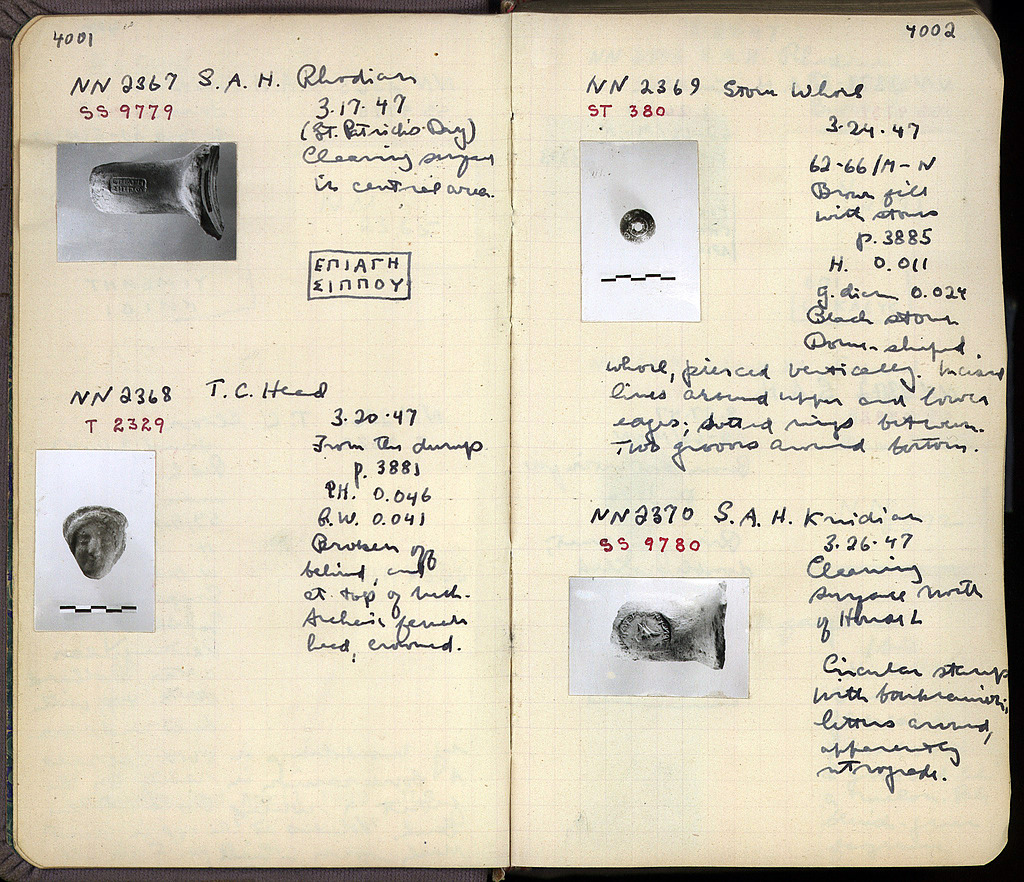 4001
NN 2367 S. A. H. Rhodian
SS 9779
3·17·47
(St. Patrick's Day)
Cleaning surface
in central area.
ΕΠΙΑΓΗ
ΣΙΠΠΟΥ
NN 2368 T. C. Head
T 2329
3·20·47
From the dumps
p. 3881
P.H. 0.046
P.W. 0.041
Broken off
behind, and
at top of neck.
Archaic female
head, crowned.
4002
NN 2369 Stone Whorl
ST 380
3·24·47
62-66/Μ-Ν
Brown fill
with stones
p. 3885
H. 0.011
g. diam 0.024
Black stone
Dome-shaped
whorl, pierced vertically. Incised
lines around upper and lower
edges; dotted rings between.
Two grooves around bottom.
NN 2370 S. A. H. Knidian
SS 9780
3·26·47
Cleaning
surface north
of House L
Circular stamp
with
letters around,
apparently
retrograde.